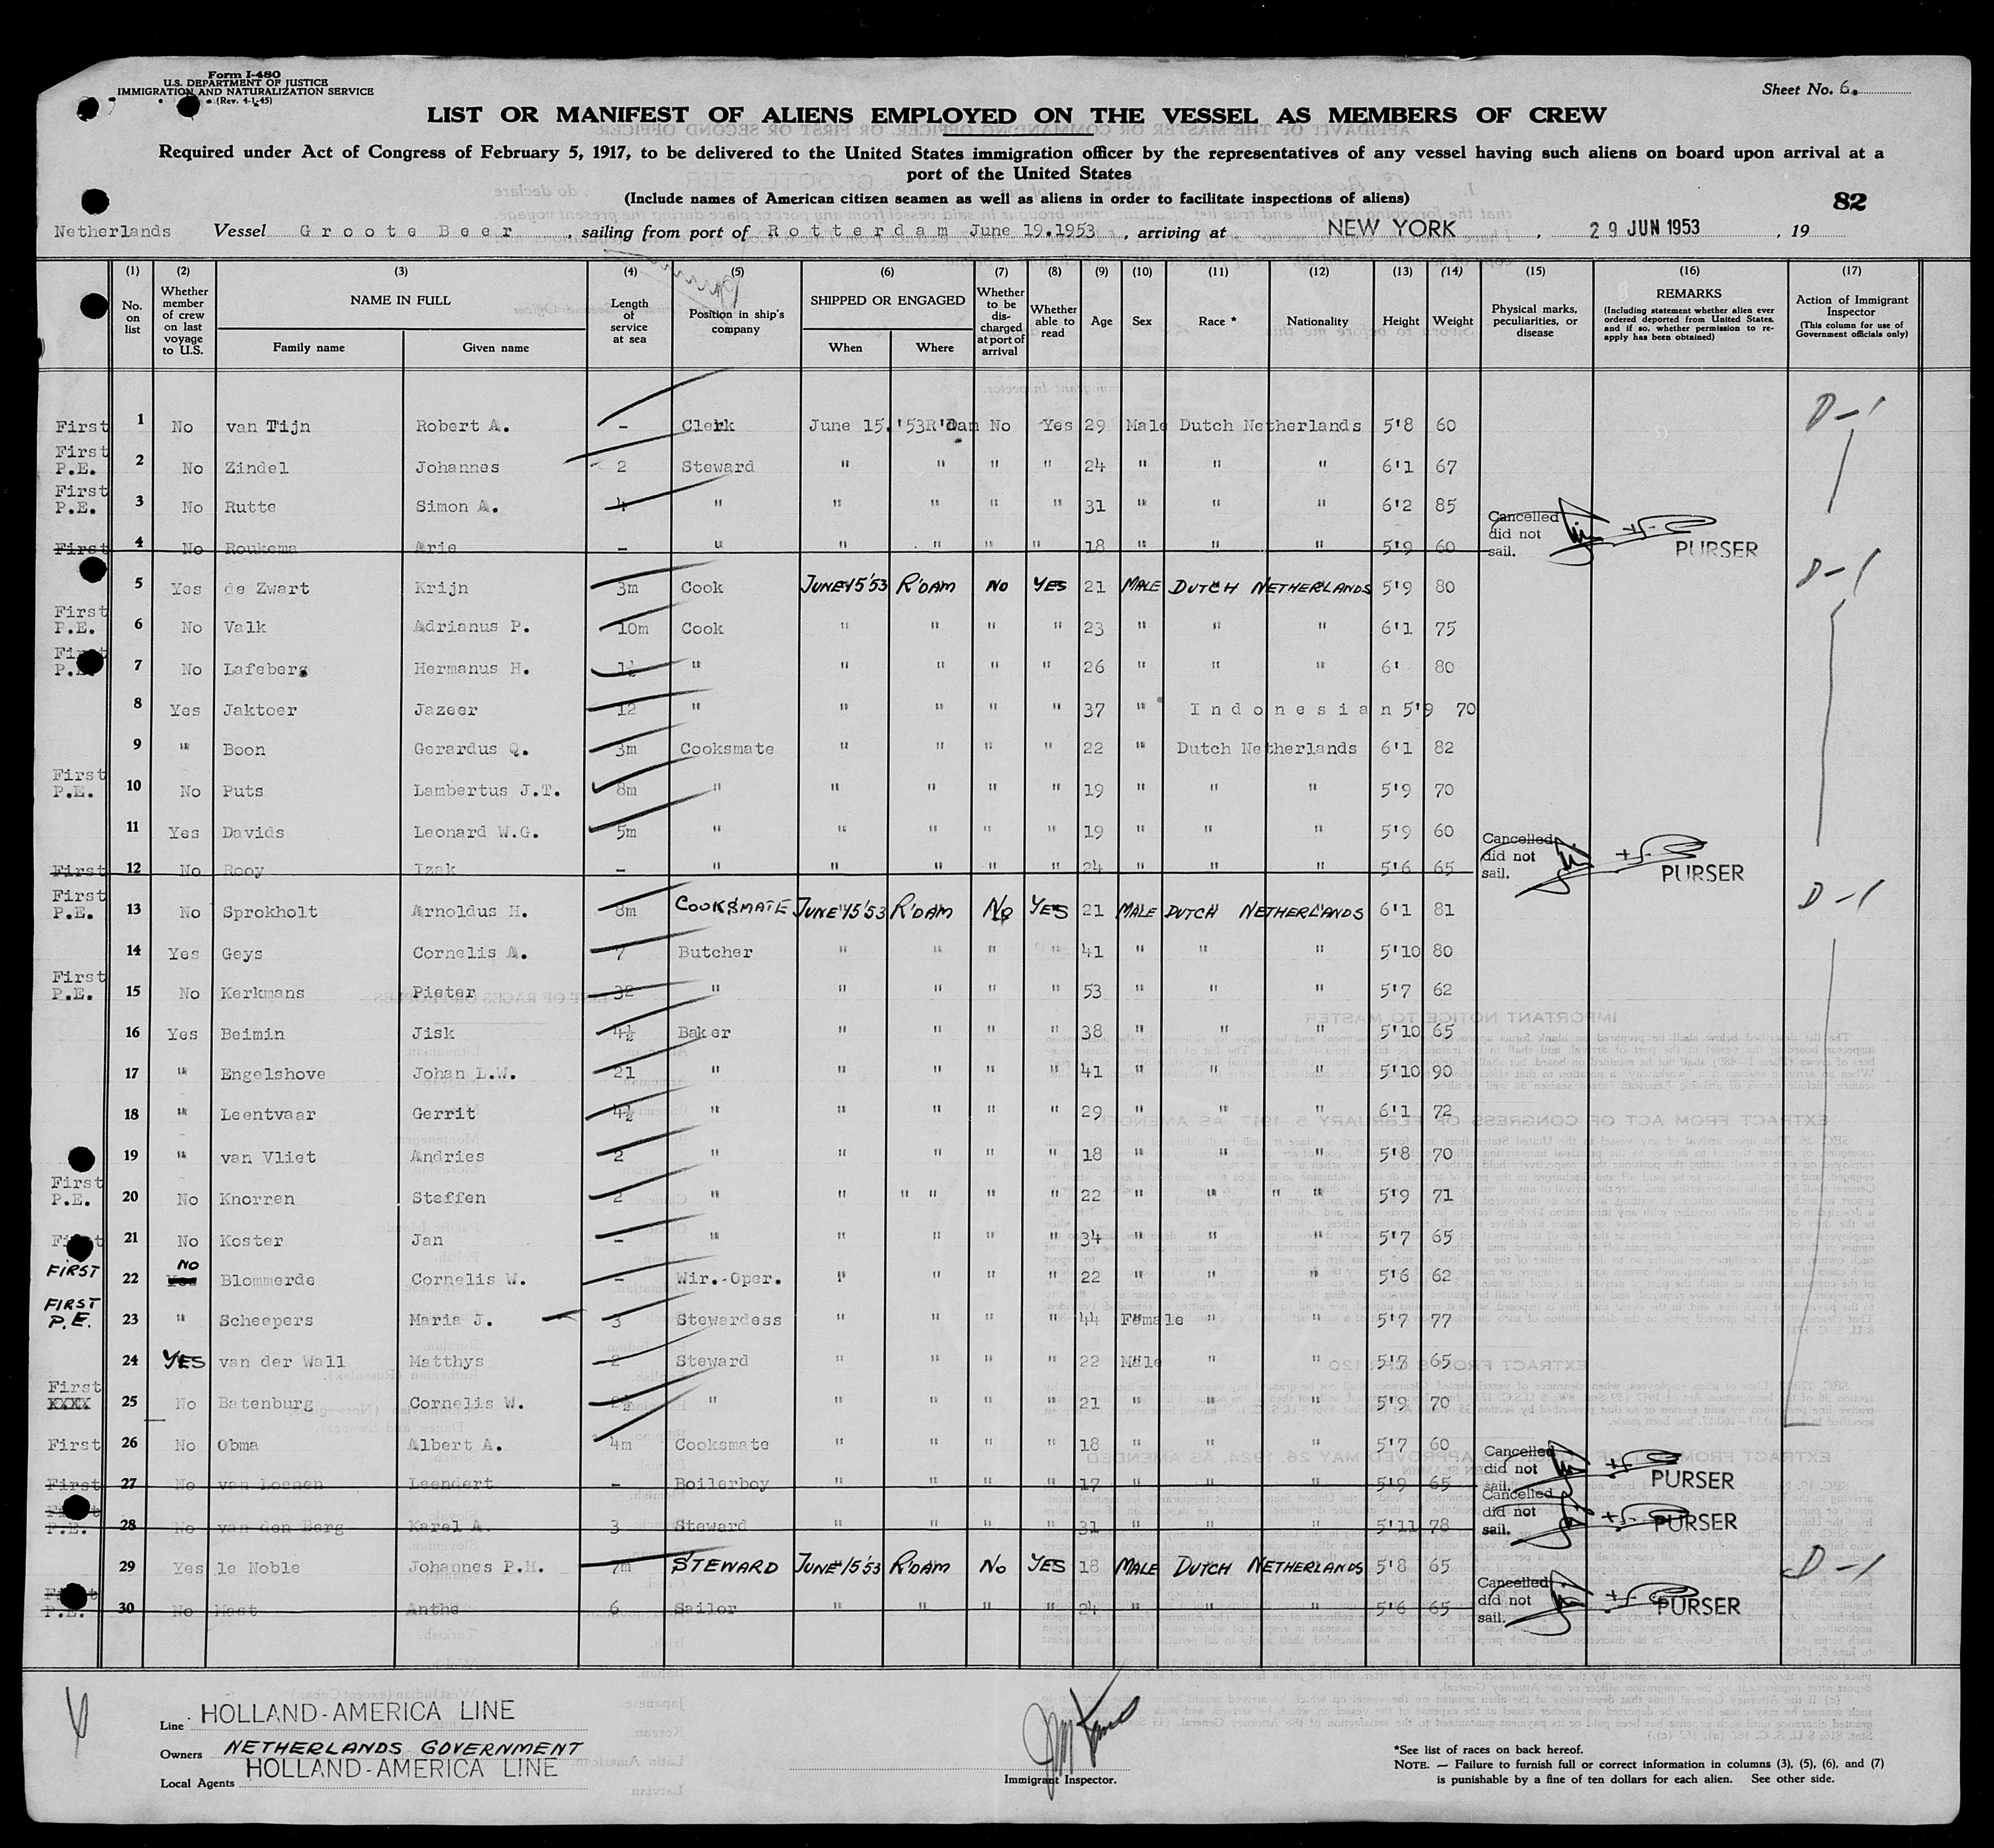 Form I-480
U.S. DEPARTMENT OF JUSTICE
IMMIGRATION AND NATURALIZATION SERVICE
(Rev. 4-1-45)
Sheet No. 6.
LIST OR MANIFEST OF ALIENS EMPLOYED ON THE VESSEL AS MEMBERS OF CREW
Required under Act of Congress of February 5, 1917, to be delivered to the United States immigration officer by the representatives of any vessel having such aliens on board upon arrival at a
port of the United States
(Include names of American citizen seamen as well as aliens in order to facilitate inspections of aliens)
82
Netherlands Vessel Groote Beer, sailing from port of Rotterdam June 19.1953, arriving at NEW YORK, 29 JUN 1953, 19
(1) (2) (3) (4) (5) (6) (7) (8) (9) (10) (11) (12) (13) (14) (15) (16) (17)
No. on list
Whether member of crew on last voyage to U.S.
NAME IN FULL
Family name
Given name
Length of service at sea
Position in ship's company
SHIPPED OR ENGAGED
When
Where
Whether to be discharged at port of arrival
Whether able to read
Age
Sex
Race *
Nationality
Height
Weight
Physical marks, peculiarities, or disease
REMARKS
(Including statement whether alien ever ordered deported from United States, and if so, whether permission to re-apply has been obtained)
Action of Immigrant Inspector
(This column for use of Government officials only)
First 1 No van Tijn Robert A. - Clerk June 15.'53 R'Dam No Yes 29 Male Dutch Netherlands 5'8 60 D-1
First P.E. 2 No Zindel Johannes 2 Steward " " " " 24 " " " 6'1 67
First P.E. 3 No Rutte Simon A. 4 " " " " " 31 " " " 6'2 85
First 4 No Roukema Arie - " " " " " 18 " " " 5'9 60 Cancelled did not sail. PURSER
5 Yes de Zwart Krijn 3m Cook JUNE 15'53 R'DAM NO YES 21 MALE DUTCH NETHERLANDS 5'9 80 D-1
First P.E. 6 No Valk Adrianus P. 10m Cook " " " " 23 " " " 6'1 75
First P.E. 7 No Lafeberg Hermanus H. 1½ " " " " " 26 " " " 6' 80
8 Yes Jaktoer Jazeer 12 " " " " " 37 " Indonesian 5'9 70
9 " Boon Gerardus Q. 3m Cooksmate " " " " 22 " Dutch Netherlands 6'1 82
First P.E. 10 No Puts Lambertus J.T. 8m " " " " " 19 " " " 5'9 70
11 Yes Davids Leonard W.G. 5m " " " " " 19 " " " 5'9 60
First 12 No Rooy Izak - " " " " " 24 " " " 5'6 65 Cancelled did not sail. PURSER
First P.E. 13 No Sprokholt Arnoldus H. 8m COOKSMATE JUNE 15'53 R'DAM No YES 21 MALE DUTCH NETHERLANDS 6'1 81 D-1
14 Yes Geys Cornelis A. 7 Butcher " " " " 41 " " " 5'10 80
First P.E. 15 No Kerkmans Pieter 32 " " " " " 53 " " " 5'7 62
16 Yes Beimin Jisk 4½ Baker " " " " 38 " " " 5'10 65
17 " Engelshove Johan L.W. 21 " " " " " 41 " " " 5'10 90
18 " Leentvaar Gerrit 4½ " " " " " 29 " " " 6'1 72
19 " van Vliet Andries 2 " " " " " 18 " " " 5'8 70
First P.E. 20 No Knorren Steffen 2 " " " " " " 22 " " " " 5'9 71
First 21 No Koster Jan - " " " " " 34 " " " 5'7 65
FIRST 22 NO Blommerde Cornelis W. - Wir.-Oper. " " " " 22 " " " 5'6 62
FIRST P.E. 23 " Scheepers Maria J. 3 Stewardess " " " " 44 Female " " 5'7 77
24 YES van der Wall Matthys 2 Steward " " " " 22 Male " " 5'7 65
First XXXX 25 No Batenburg Cornelis W. " " " " " 21 " " " 5'9 70
First 26 No Obma Albert A. 4m Cooksmate " " " " 18 " " " 5'7 60
First 27 No van Loenen Leendert - Boilerboy " " " " 17 " " " 5'9 65 Cancelled did not sail. PURSER
First P.E. 28 No van den Berg Karel A. 3 Steward " " " " 31 " " " 5'11 78 Cancelled did not sail. PURSER
29 Yes le Noble Johannes P.H. 7m STEWARD JUNE 15'53 R'DAM No YES 18 MALE DUTCH NETHERLANDS 5'8 65 D-1
First P.E. 30 No Mast Anthe 6 Sailor " " " " 24 " " " 5'6 65 Cancelled did not sail. PURSER
Line HOLLAND-AMERICA LINE
Owners NETHERLANDS GOVERNMENT
Local Agents HOLLAND-AMERICA LINE
Immigrant Inspector.
*See list of races on back hereof.
NOTE. — Failure to furnish full or correct information in columns (3), (5), (6), and (7)
is punishable by a fine of ten dollars for each alien. See other side.